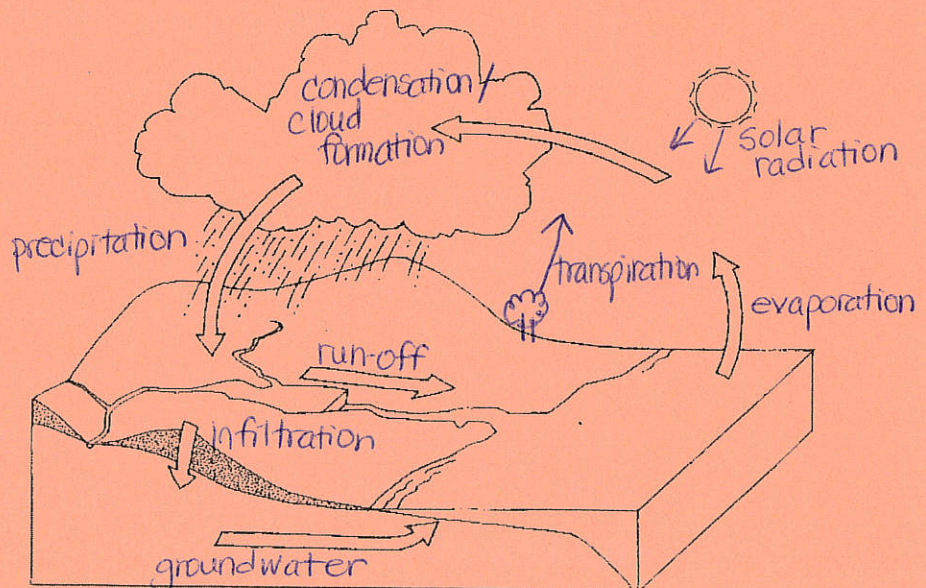 condensation/
cloud
formation
solar
radiation
precipitation
transpiration
evaporation
run-off
infiltration
groundwater